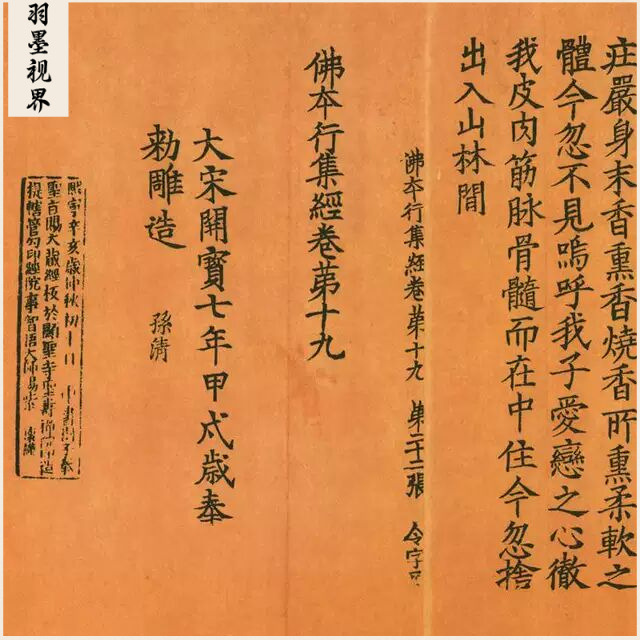 莊嚴身末香熏香燒香所熏柔軟之
體今忽不見嗚呼我子愛戀之心徹
我皮肉筋脉骨髓而在中住今忽捨
出入山林間
佛本行集經卷第十九 第二十二張 令字号
佛本行集經卷第十九
大宋開寶七年甲戌歲奉
勑雕造 孫清
熙寧辛亥歲仲秋初十日中書劄子奉
聖旨賜大藏經板於顯聖寺聖壽禪院印造
提轄管勾印經院事智悟大師
羽墨视界